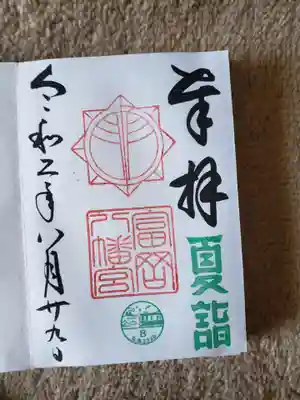 奉拝
夏詣
富岡
八幡宮
8
令和二年八月廿九日